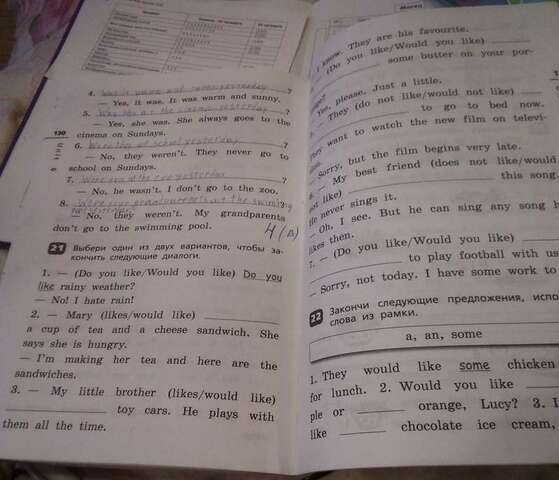 4. Was it warm and sunny yesterday ?
— Yes, it was. It was warm and sunny.
5. Was she at the cinema yesterday ?
— Yes, she was. She always goes to the
cinema on Sundays.
130
6. Were they at school yesterday ?
— No, they weren't. They never go to
school on Sundays.
7. Were you at the zoo yesterday ?
— No, he wasn't. I don't go to the zoo.
8. Were your grandparents at the swimming
?
— No, they weren't. My grandparents
don't go to the swimming pool.
4 (A)
21 Выбери один из двух вариантов, чтобы за-
кончить следующие диалоги.
1. — (Do you like/Would you like) Do you
like rainy weather?
— No! I hate rain!
2. — Mary (likes/would like)
a cup of tea and a cheese sandwich. She
says she is hungry.
— I'm making her tea and here are the
sandwiches.
3. — My little brother (likes/would like)
toy cars. He plays with
them all the time.
know. They are his favourite.
(Do you like/Would you like)
some butter on your por-
Yes, please. Just a little.
They (do not like/would not like)
to go to bed now.
They want to watch the new film on televi-
Sorry, but the film begins very late.
— My best friend (does not like/would
not like) this song.
He never sings it.
— Oh, I see. But he can sing any song h
likes then.
7. — (Do you like/Would you like)
to play football with us
— Sorry, not today. I have some work to
22 Закончи следующие предложения, испо
слова из рамки.
a, an, some
1. They would like some chicken
for lunch. 2. Would you like
ple or orange, Lucy? 3. I
like chocolate ice cream,